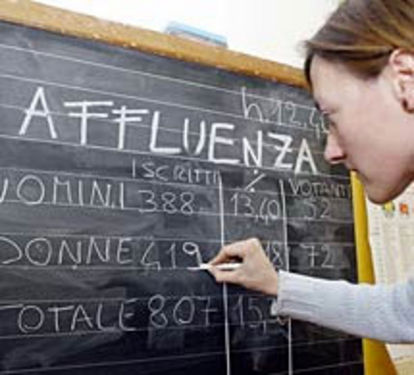 h 12,
AFFLUENZA
ISCRITTI % VOTANTI
UOMINI 388 13,40 52
DONNE 419 72
TOTALE 807